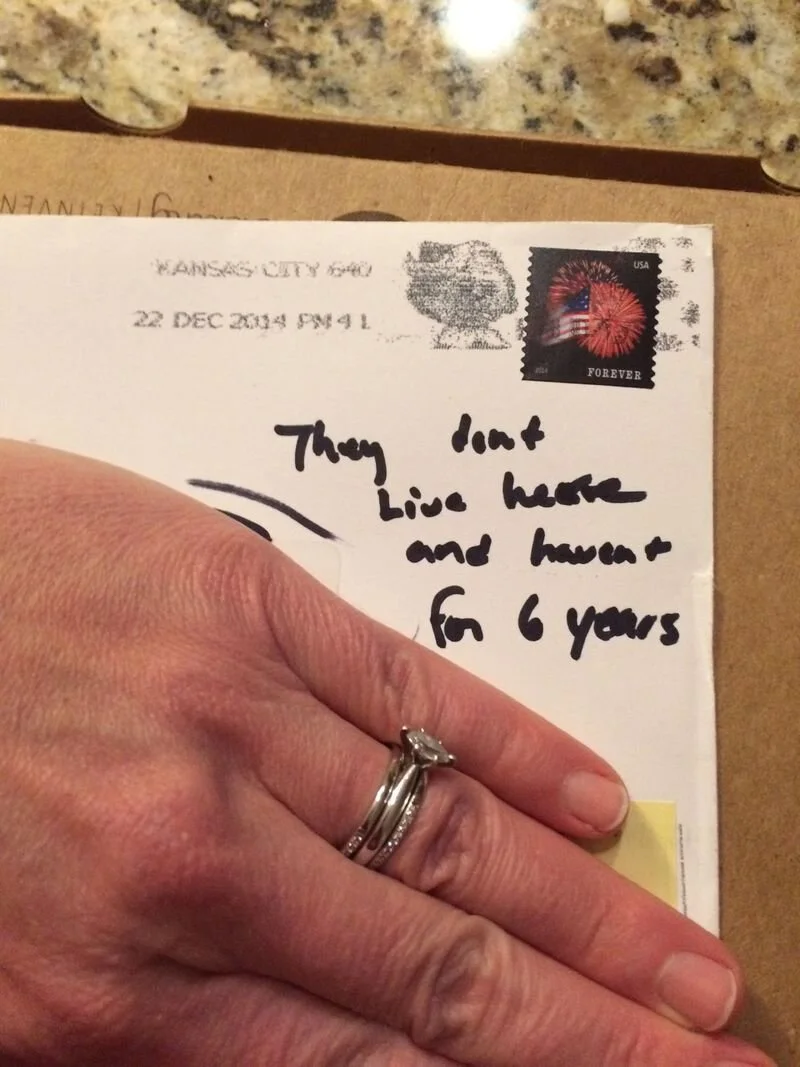 KANSAS CITY 640
22 DEC 2014 PM 4 L
USA
2014
FOREVER
They dont
Live heare
and havent
for 6 years